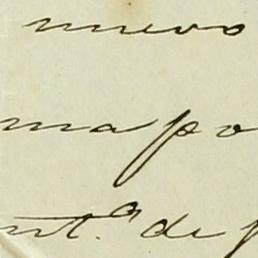 nuevo
ma po
nt.a de p